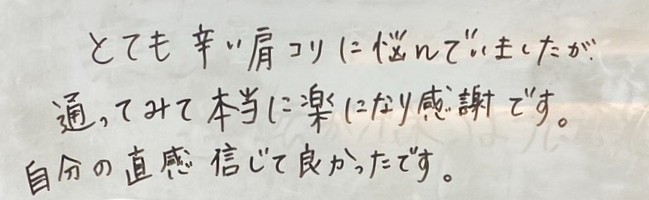 とても辛い肩コリに悩んでいましたが
通ってみて本当に楽になり感謝です。
自分の直感信じて良かったです。